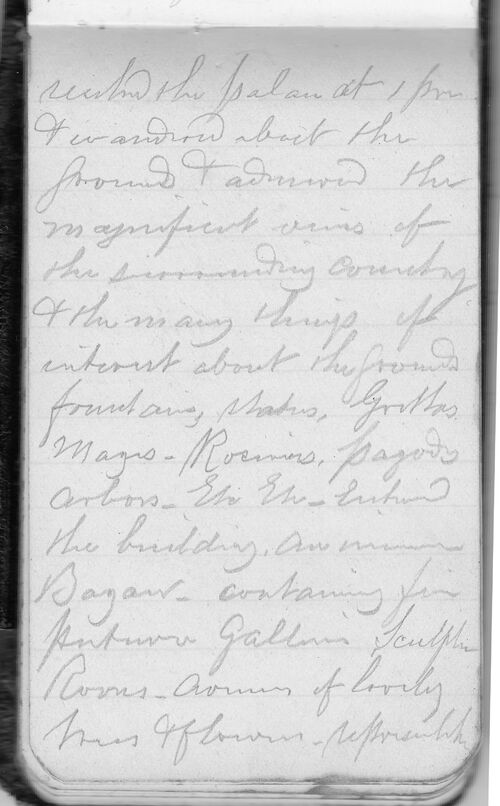 reached the palace at 1 pm
& wandered about the
grounds & admired the
magnificent views of
the surrounding country
& the many things of
interest about the grounds
fountains, statues, Grottos
Mazes - Roseries, pagodas
arbors - Etc Etc - Entered
the building, an immense
Bazaar - containing fine
picture Galleries Sculpture
Rooms - avenues of lovely
trees & flowers -